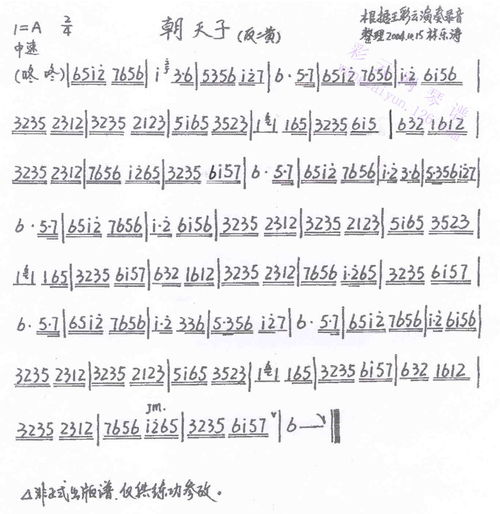 1=A 2/4 朝天子 (反二黄) 根据王彩云演奏录音
中速 整理2004.10.15 林乐涛
(咚 咚)|651̇2̇ 7656|1̇ 3·6|5356 1̇2̇7|6· 5·7|651̇2̇ 7656|1̇·2̇ 6156|
3235 2312|3235 2123|5165 3523|1 1 165|3235 615|632 1612|
3235 2312|7656 1̇265|3235 6157|6· 5·7|651̇2̇ 7656|1̇·2̇ 3·6|5·3561̇27|
6· 5·7|651̇2̇ 7656|1̇·2̇ 6156|3235 2312|3235 2123|5165 3523|
1 1 165|3235 6157|632 1612|3235 2312|7656 1̇·265|3235 6157|
6· 5·7|651̇2̇ 7656|1̇·2̇ 336|5·356 1̇27|6· 5·7|651̇2̇ 7656|1̇·2̇ 6156|
3235 2312|3235 2123|5165 3523|1 1 165|3235 6157|632 1612|
3235 2312|7656 1̇265|3235 6157|6—
△非正式出版谱,仅供练功参考。